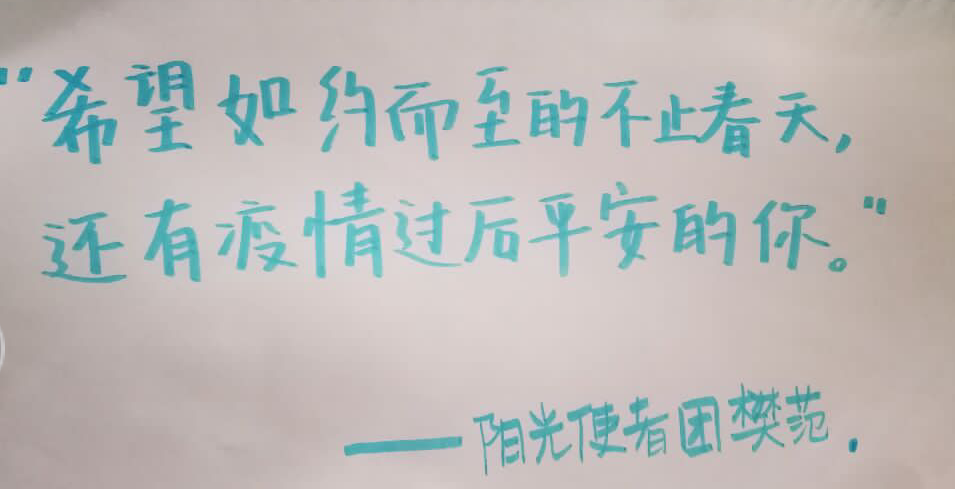 "希望如约而至的不止春天,
还有疫情过后平安的你。"
——阳光使者团樊范.